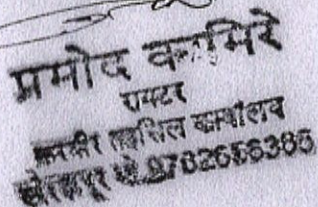 प्रमोद कामिरे
रायटर
करवीर तहसिल कार्यालय
कोल्हापूर मो.9762656385